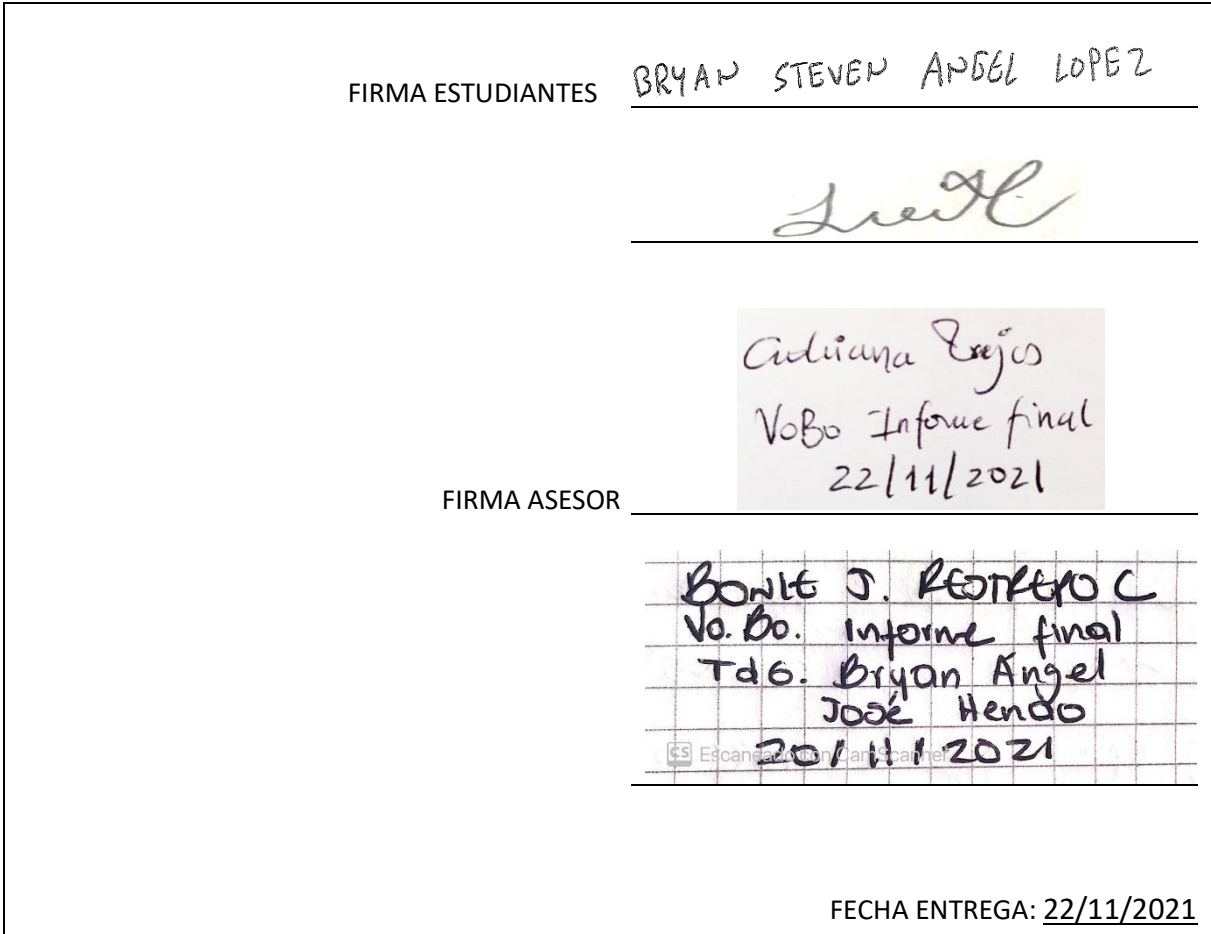 FIRMA ESTUDIANTES BRYAN STEVEN ANGEL LOPEZ
Adriana Trejos
VoBo Informe final
22/11/2021
FIRMA ASESOR
BONIE J. RESTREPO C
Vo. Bo. Informe final
TdG. Bryan Ángel
José Henao
20/11/2021
CS Escaneado con CamScanner
FECHA ENTREGA: 22/11/2021